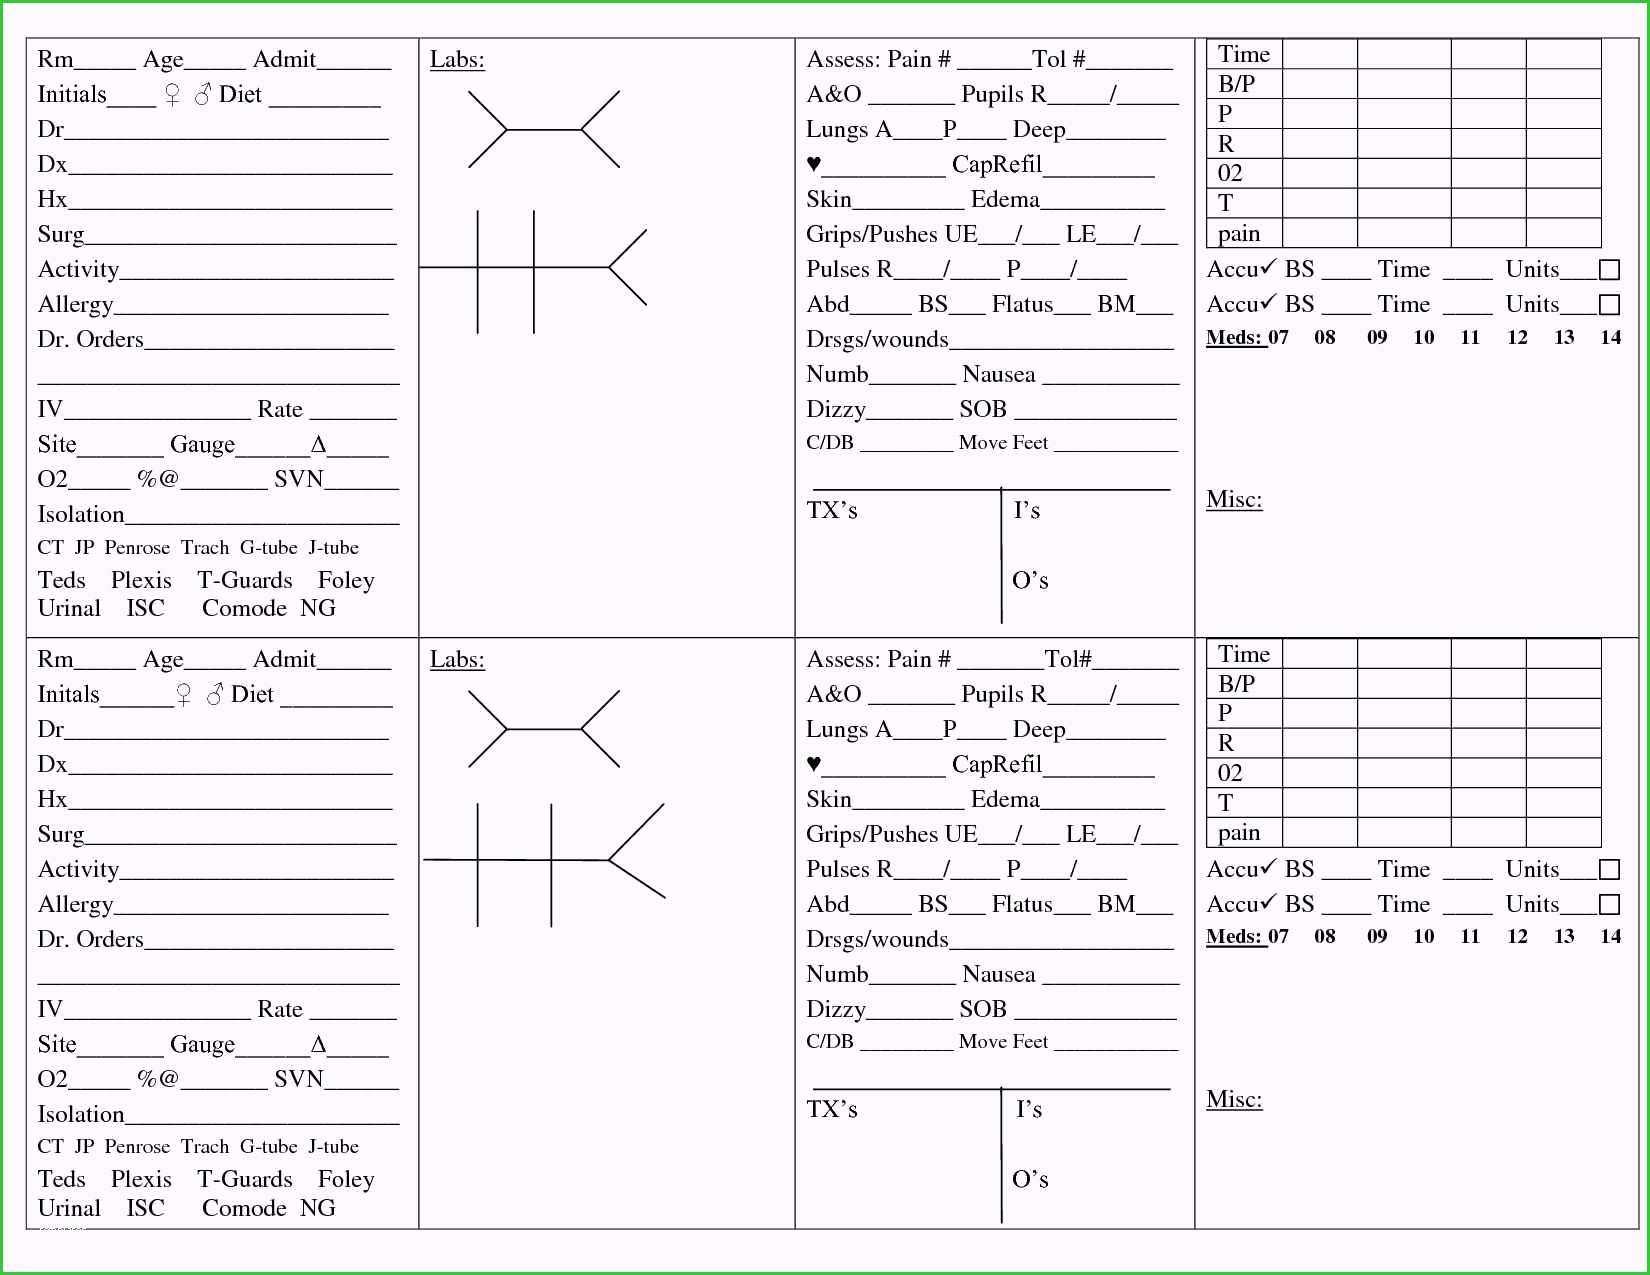 Rm_____ Age_____ Admit______
Initials____ ♀ ♂ Diet _________
Dr__________________________
Dx__________________________
Hx__________________________
Surg_________________________
Activity______________________
Allergy______________________
Dr. Orders____________________
_____________________________
IV_______________ Rate _______
Site_______ Gauge______Δ_____
O2_____ %@_______ SVN______
Isolation______________________
CT JP Penrose Trach G-tube J-tube
Teds Plexis T-Guards Foley
Urinal ISC Comode NG
Labs:
Assess: Pain # ______Tol #_______
A&O _______ Pupils R_____/_____
Lungs A____P____ Deep________
♥__________ CapRefil_________
Skin_________ Edema__________
Grips/Pushes UE___/___ LE___/___
Pulses R____/____ P____/____
Abd_____ BS___ Flatus___ BM___
Drsgs/wounds__________________
Numb_______ Nausea ___________
Dizzy_______ SOB _____________
C/DB _________ Move Feet ____________
TX’s I’s
O’s
Time
B/P
P
R
02
T
pain
Accu✓ BS ____ Time ____ Units___□
Accu✓ BS ____ Time ____ Units___□
Meds: 07 08 09 10 11 12 13 14
Misc:
Rm_____ Age_____ Admit______
Initals______♀ ♂ Diet _________
Dr__________________________
Dx__________________________
Hx__________________________
Surg_________________________
Activity______________________
Allergy______________________
Dr. Orders____________________
_____________________________
IV_______________ Rate _______
Site_______ Gauge______Δ_____
O2_____ %@_______ SVN______
Isolation______________________
CT JP Penrose Trach G-tube J-tube
Teds Plexis T-Guards Foley
Urinal ISC Comode NG
Labs:
Assess: Pain # _______Tol#_______
A&O _______ Pupils R_____/_____
Lungs A____P____ Deep________
♥__________ CapRefil_________
Skin_________ Edema__________
Grips/Pushes UE___/___ LE___/___
Pulses R____/____ P____/____
Abd_____ BS___ Flatus___ BM___
Drsgs/wounds__________________
Numb_______ Nausea ___________
Dizzy_______ SOB _____________
C/DB _________ Move Feet ____________
TX’s I’s
O’s
Time
B/P
P
R
02
T
pain
Accu✓ BS ____ Time ____ Units___□
Accu✓ BS ____ Time ____ Units___□
Meds: 07 08 09 10 11 12 13 14
Misc: